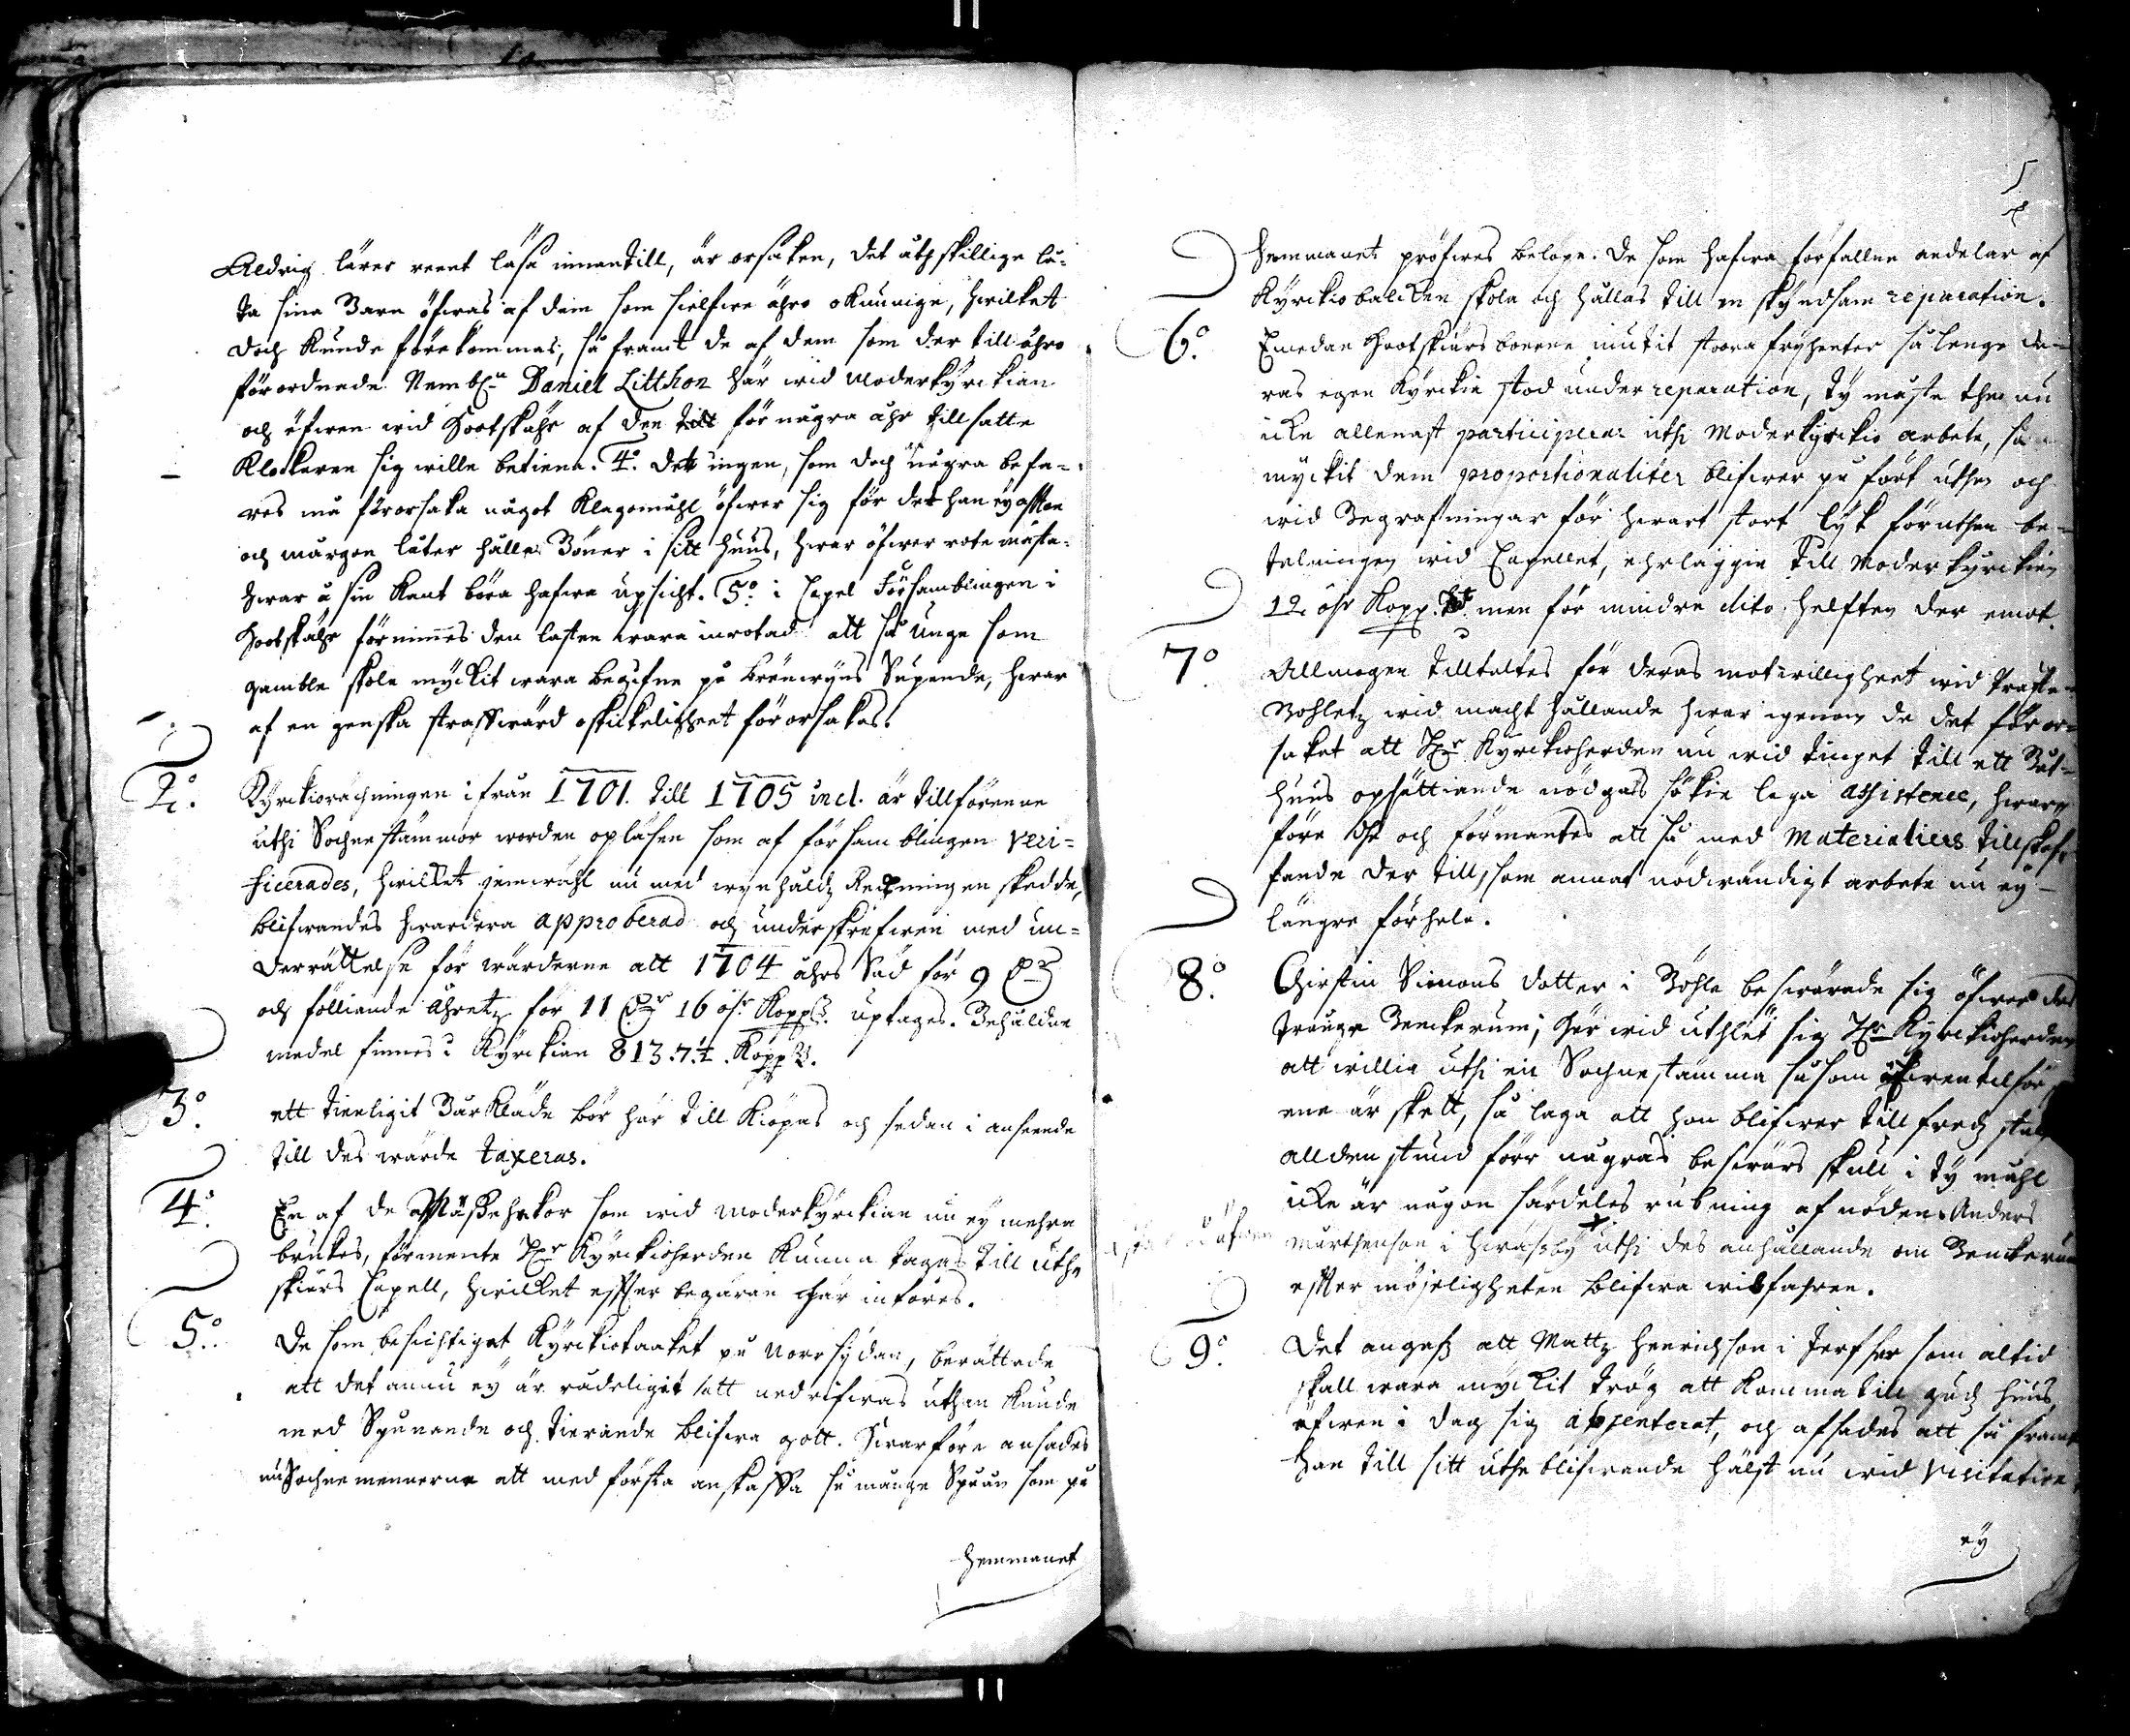 Aldrig lärer reent läsa innantill, är orsaken, det åthskillige lå-
ta sina Barn öfwas af dem som sielfwe ähro okunnige, hwilket
doch kunde förekommas, så framt de af dem som der till ähro
förordnade Nembl:n Daniel Litthon här wid moderkyrkian
och öfwen wid Hootskähr af den för några åhr tillsatte
Klockaren sig wille betiena. 4:o Dett ingen, som doch några befa-
res må förorsaka något Klagemåhl öfwer sig för det han ey afton
och mårgon låter hålla Böner i sitt huus, hwar öfwer rote mästa-
hwar å sin kant böra hafwa upsicht. 5:o i Capel Församblingen i
Hootskähr förnimmes den lasten wara inrotad att så unge som
gamble skola myckit wara begifne på brenwyns Supende, hwar
af en ganska straffwärd oskickeligheet förorsakas.
2:o Kyrckioräckningen ifrån 1701. till 1705 incl. är tillförenne
uthi Sochnestämmor worden opläsen som af församblingen veri-
ficerades, hwilket jemwähl nu med innehåldz Reckningen skedde,
blifwandes hwardera approberad och underskrefwen med un-
derrättelse för wärderne att 1704 åhrs Säd för 9 D:r
och följande åhretz för 11 D:r 16 ör Kopp:r uptages. Behåldne
medel finnes i Kyrkian 813.7.1/2. Kopp:r.
3:o ett tienligit Bårkläde bör här till kiöpas och sedan i anseende
till des wärde taxeras.
4:o En af de Mässehakor som wid moderkyrkian nu ey mehra
brukes, förmente H:r Kyrkioherden kunna tagas till uthe
skiärs Capell, hwilket effter begäran här införes.
5:o De som besichtigat Kyrkiotaaket på norr sydan, berättade
att det ännu ey är rådeligit att nedrifwas uthan kunde
med Spånande och tierande blifwa gott. Hwarföre ansades
nu Sochnemennerne att med första anskaffa så månge Spåån som på
Hemmanet
5
Hemmanet pröfwes belöpe. De som hafwa förfallne andelar af
Kyrkiobalcken skola och hållas till en skyndsam reparation.
6:o Emedan Hootskiärsboerne niutit stoora fryheeter så lenge de-
ras egen Kyrkia stod under reparation, ty måste the nu
icke allenast participera uthi Moderkyrkio arbete, så
myckit dem proportionaliter blifwer på fört uthan och
wid Begrafningar för hwart stort lyk föruthan be-
talningen wid Capellet, ehrläggia till Moderkyrkian
12. ör Kopp. M:t men för mindre dito helften der emot.
7:o Allmogen tilltaltes för deras motwilligheet wid Präste
Bohletz wid macht hållande hwar igenom de det föror-
saket att H:r Kyrkioherden nu wid tinget till ett Båt-
huus opsättiande nödgas sökia laga assistence, hwar
före the och förmantes att så med materialiers tillskaf-
fande der till, som annat nödwändigt arbete nu ey
längre förhala.
8:o Christin Simons dotter i Böhle beswärade sig öfwer det
trånge Benckerum; här wid uthlät sig H:r Kyrkioherden
att willia uthi en Sochnestämma såsom
ene är skett, så laga att hon blifwer till fredz
alldenstund förr någras beswärs skull i ty måhl
icke är någon särdeles rubning af nöden. Anders
Mårthenson i uthi des anhållande om Benckerum
effter möjeligheeten blifwa wilfahren.
9:o Det angafs att Mattz Henrichson i som altid
skall wara myckit trög att komma till gudz huus,
öfwen i dag sig absenterat, och afsades att så framt
han till sitt uthe blifwande hälst nu wid visitation
ey